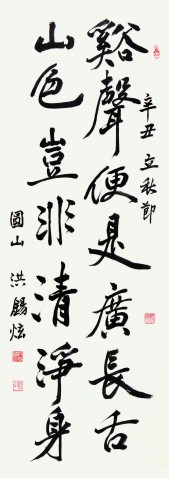 谿聲便是廣長舌
山色豈非清淨身
辛丑 立秋節
圓山 洪錫炫